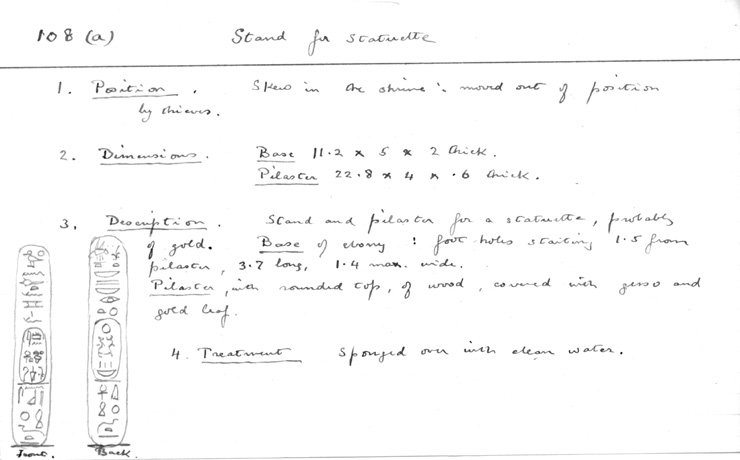 108 (a) Stand for statuette
1. Position. Skew in the shrine ∴ moved out of position
by thieves.
2. Dimensions. Base 11.2 x 5 x 2 thick.
Pilaster 22.8 x 4 x .6 thick.
3. Description. Stand and pilaster for a statuette, probably
of gold. Base of ebony : foot-holes starting 1.5 from
pilaster, 3.7 long, 1.4 max. wide.
Pilaster, with rounded top, of wood, covered with gesso and
gold leaf.
4. Treatment Sponged over with clean water.
Front. Back.